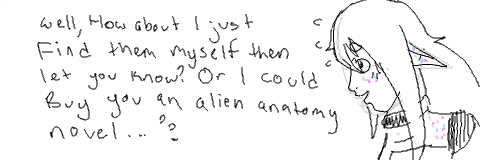 well, How about I just
Find them myself then
let you know? Or I could
Buy you an alien anatomy
novel...??